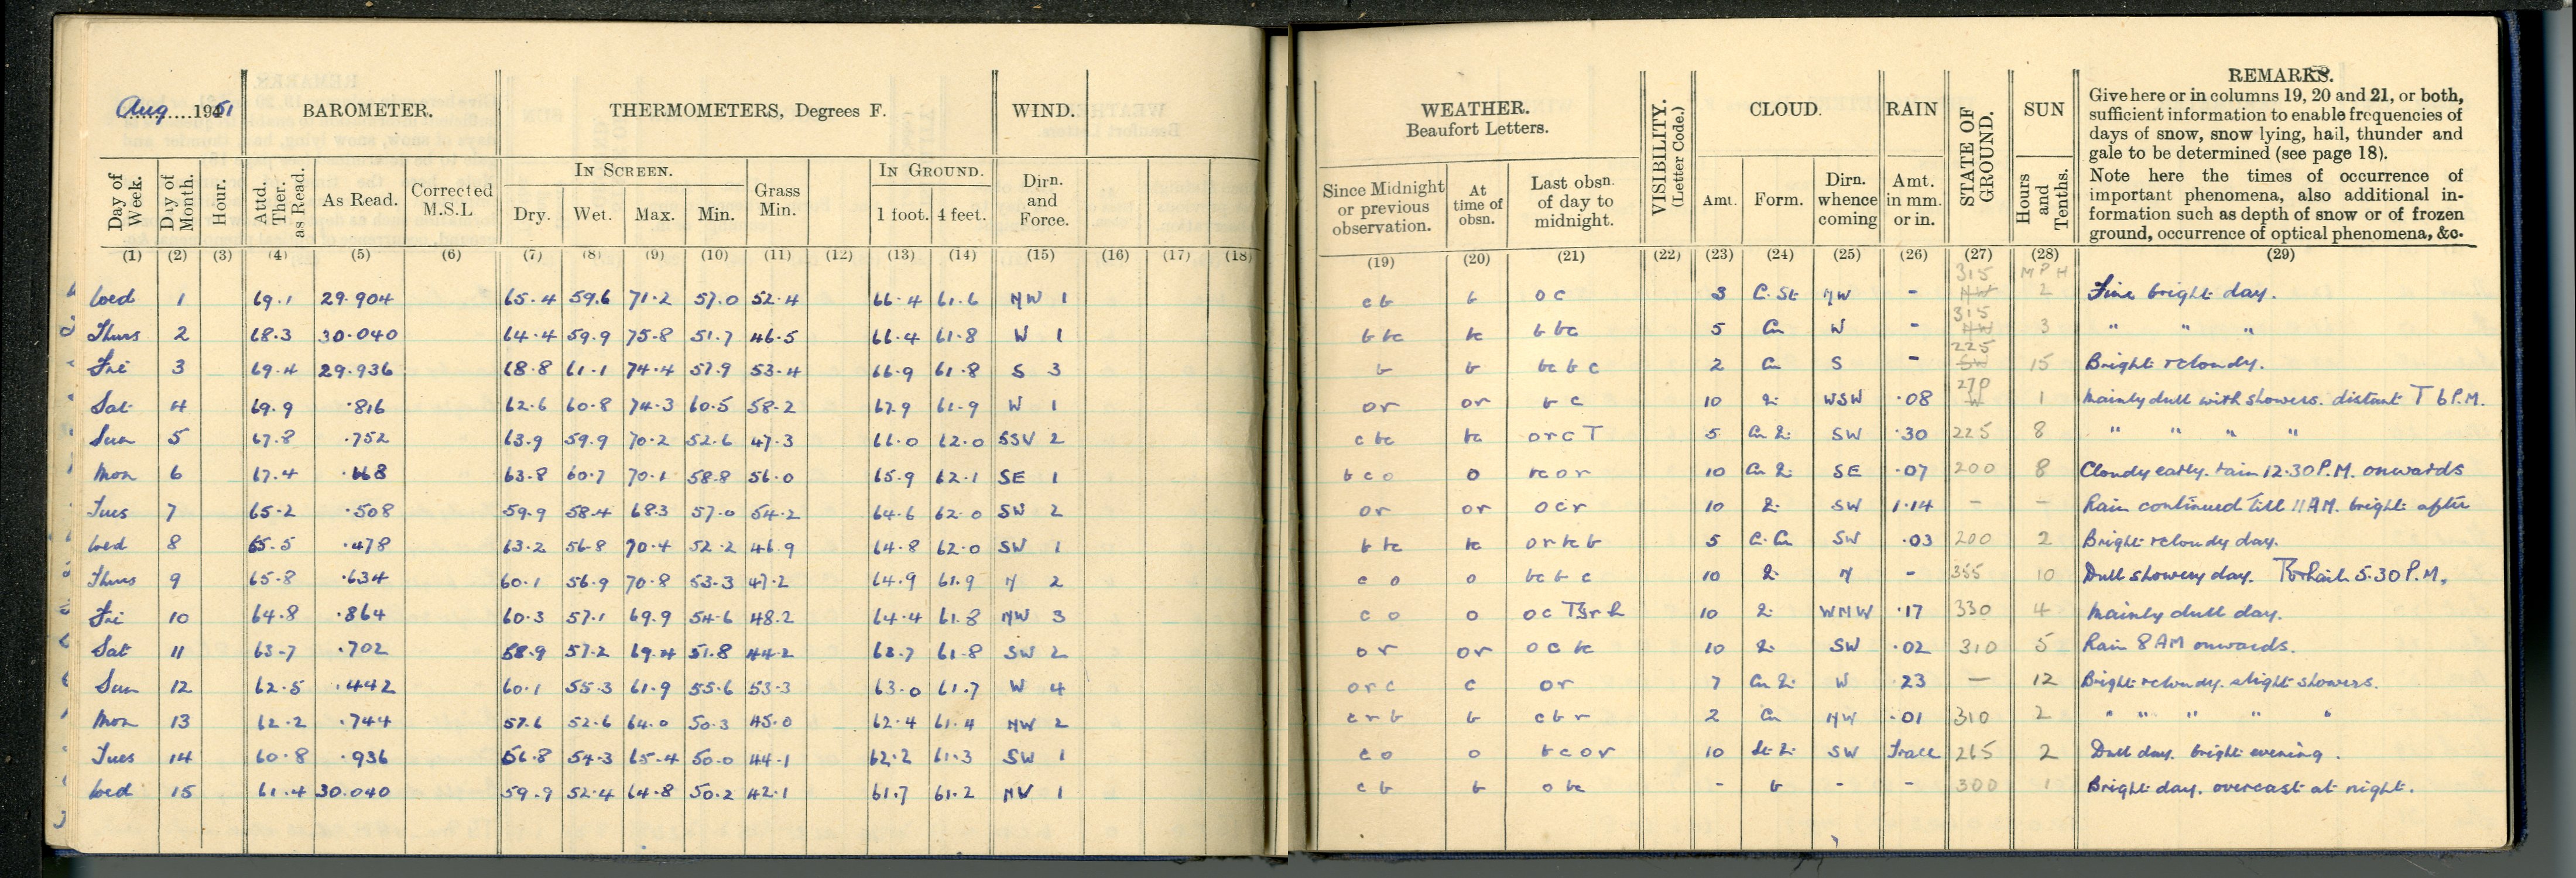 Aug 1951 BAROMETER. THERMOMETERS, Degrees F. WIND.
Day of Week. Day of Month. Hour. Attd. Ther. as Read. As Read. Corrected M.S.L IN SCREEN. Dry. Wet. Max. Min. Grass Min. IN GROUND. 1 foot. 4 feet. Dirn. and Force.
(1) (2) (3) (4) (5) (6) (7) (8) (9) (10) (11) (12) (13) (14) (15) (16) (17) (18)
Wed 1 69.1 29.904 65.4 59.6 71.2 57.0 52.4 66.4 61.6 NW 1
Thurs 2 68.3 30.040 64.4 59.9 75.8 51.7 46.5 66.4 61.8 W 1
Fri 3 69.4 29.936 68.8 61.1 74.4 57.9 53.4 66.9 61.8 S 3
Sat 4 69.9 .816 62.6 60.8 74.3 60.5 58.2 67.9 61.9 W 1
Sun 5 67.8 .752 63.9 59.9 70.2 52.6 47.3 66.0 62.0 SSW 2
Mon 6 67.4 .668 63.8 60.7 70.1 58.8 56.0 65.9 62.1 SE 1
Tues 7 65.2 .508 59.9 58.4 68.3 57.0 54.2 64.6 62.0 SW 2
Wed 8 65.5 .478 63.2 56.8 70.4 52.2 46.9 64.8 62.0 SW 1
Thurs 9 65.8 .634 60.1 56.9 70.8 53.3 47.2 64.9 61.9 N 2
Fri 10 64.8 .864 60.3 57.1 69.9 54.6 48.2 64.4 61.8 NW 3
Sat 11 63.7 .702 58.9 57.2 69.4 51.8 44.2 63.7 61.8 SW 2
Sun 12 62.5 .442 60.1 55.3 61.9 55.6 53.3 63.0 61.7 W 4
Mon 13 62.2 .744 57.6 52.6 64.0 50.3 45.0 62.4 61.4 NW 2
Tues 14 60.8 .936 56.8 54.3 65.4 50.0 44.1 62.2 61.3 SW 1
Wed 15 61.4 30.040 59.9 52.4 64.8 50.2 42.1 61.7 61.2 NW 1
WEATHER. Beaufort Letters. VISIBILITY. (Letter Code.) CLOUD. RAIN STATE OF GROUND. SUN REMARKS.
Give here or in columns 19, 20 and 21, or both,
sufficient information to enable frequencies of
days of snow, snow lying, hail, thunder and
gale to be determined (see page 18).
Note here the times of occurrence of
important phenomena, also additional in-
formation such as depth of snow or of frozen
ground, occurrence of optical phenomena, &c.
Since Midnight or previous observation. At time of obsn. Last obsn. of day to midnight. Amt. Form. Dirn. whence coming Amt. in mm. or in. Hours and Tenths.
(19) (20) (21) (22) (23) (24) (25) (26) (27) (28) (29)
MPH
c b b o c 3 C.St NW - 315 NW 2 Fine bright day.
b bc bc b bc 5 Cu W - 315 NW 3 " " "
b b bc b c 2 Cu S - 225 SW 15 Bright & cloudy.
or or b c 10 WSW .08 270 W 1 Mainly dull with showers. distant T 6 P.M.
c bc bc o r c T 5 Cu SW .30 225 8 " " " "
b c o o rc o r 10 Cu SE .07 200 8 Cloudy early. rain 12.30 P.M. onwards
or or o c r 10 SW 1.14 - - Rain continued till 11 AM. bright after
b bc bc o r bc b 5 C.Cu SW .03 200 2 Bright & cloudy day.
c o o bc b c 10 N - 355 10 Dull showery day. 5.30 P.M.
c o o o c 10 WNW .17 330 4 Mainly dull day.
or or o c bc 10 SW .02 310 5 Rain 8 AM onwards.
o r c c or 7 Cu W .23 - 12 Bright & cloudy. slight showers.
c r b b c b r 2 Cu NW .01 310 2 " " " " "
c o o b c o r 10 SW Trace 265 2 Dull day. bright evening.
c b b o bc - b - - 300 1 Bright day. overcast at night.